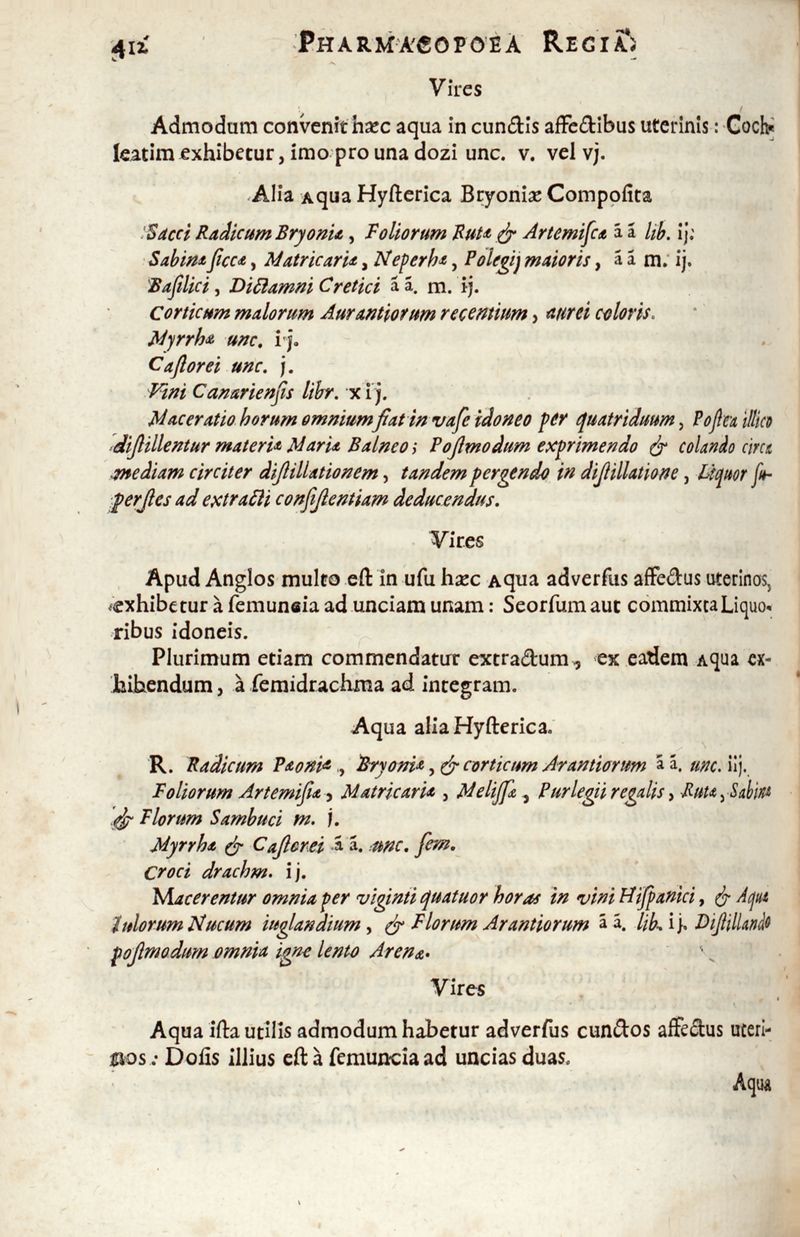 412 PHARMACOPOEA REGIA
Vires
Admodum convenit hæc aqua in cunctis affectibus uterinis: Coch-
leatim exhibetur, imo pro una dozi unc. v. vel vj.
Alia Aqua Hysterica Bryoniæ Composita
Sacci Radicum Bryoniæ, Foliorum Rutæ & Artemiscæ ã ã lib. ij.
Sabinæ siccæ, Matricariæ, Neperhæ, Polegij maioris, ã ã m. ij.
Basilici, Dictamni Cretici ã ã. m. ij.
Corticum malorum Aurantiorum recentium, aurei coloris.
Myrrhæ unc. ij.
Castorei unc. j.
Vini Canariensis libr. xij.
Maceratio horum omnium fiat in vase idoneo per quatriduum, Postea illico
distillentur materiæ Mariæ Balneo; Postmodum exprimendo & colando circa
mediam circiter distillationem, tandem pergendo in distillatione, Liquor su-
perstes ad extracti consistentiam deducendus.
Vires
Apud Anglos multo est in usu hæc Aqua adversus affectus uterinos,
exhibetur à semuncia ad unciam unam: Seorsum aut commixta Liquo-
ribus idoneis.
Plurimum etiam commendatur extractum, ex eadem Aqua ex-
hibendum, à semidrachma ad integram.
Aqua alia Hysterica.
R. Radicum Pæoniæ, Bryoniæ, & corticum Arantiorum ã ã. unc. iij.
Foliorum Artemisiæ, Matricariæ, Melissæ, Purlegii regalis, Rutæ, Sabinæ
& Florum Sambuci m. j.
Myrrhæ & Castorei ã ã. unc. sem.
Croci drachm. ij.
Macerentur omnia per viginti quatuor horas in vini Hispanici, & Aquæ
Iulorum Nucum iuglandium, & Florum Arantiorum ã ã. lib. ij. Distillando
postmodum omnia igne lento Arenæ.
Vires
Aqua ista utilis admodum habetur adversus cunctos affectus uteri-
nos: Dosis illius est à semuncia ad uncias duas.
Aqua